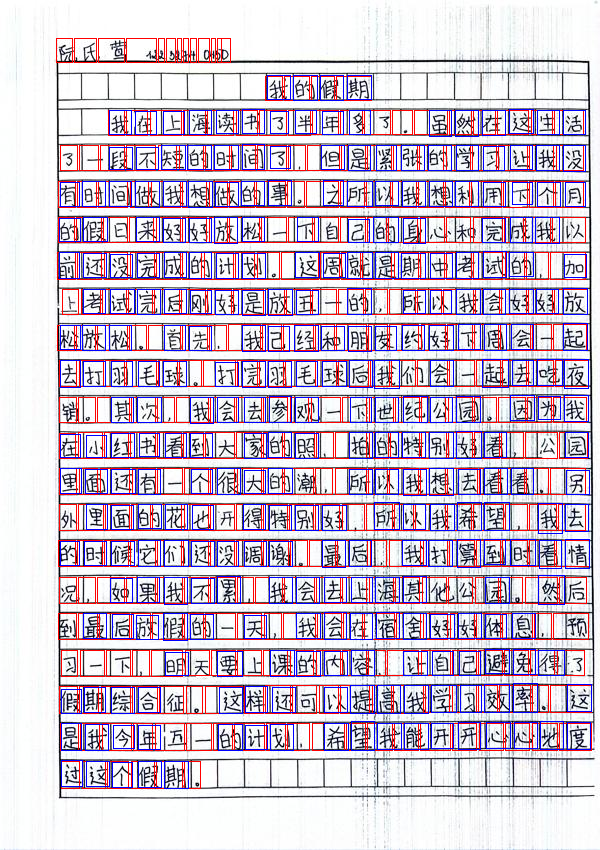 阮氏莺
我的假期
我在上海读书了半年多了。虽然在这生活
了一段不短的时间了，但是紧张的学习让我没
有时间做我想做的事。之所以我想利用下个月
的假日来好好放松一下自己的身心和完成我以
前还没完成的计划。这周就是期中考试的，加
上考试完后刚好是放五一的，所以我会好好放
松放松。首先，我已经和朋友约好下周会一起
去打羽毛球。打完羽毛球后我们会一起去吃夜
销。其次，我会去参观一下世纪公园。因为我
在小红书看到大家的照，拍的特别好看，公园
里面还有一个很大的湖，所以我想去看看。另
外里面的花也开得特别好，所以我希望，我去
的时候它们还没凋谢。最后，我打算到时看情
况，如果我不累，我会去上海其他公园。然后
到最后放假的一天，我会在宿舍好好休息，预
习一下，明天要上课的内容，让自己避免得了
假期综合征。这样还可以提高我学习效率。这
是我今年五一的计划，希望我能开开心心地度
过这个假期。